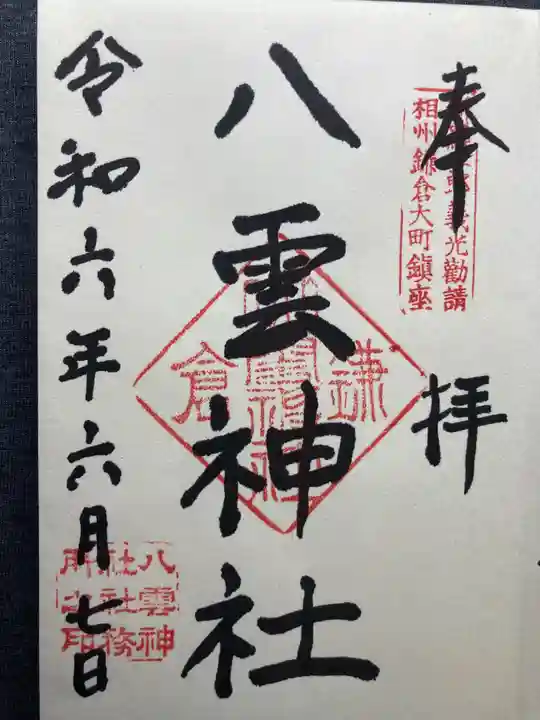 奉拝
義光勧請
相州鎌倉大町鎮座
八雲神社
鎌倉
令和六年六月七日
八雲神
社社務
所之印